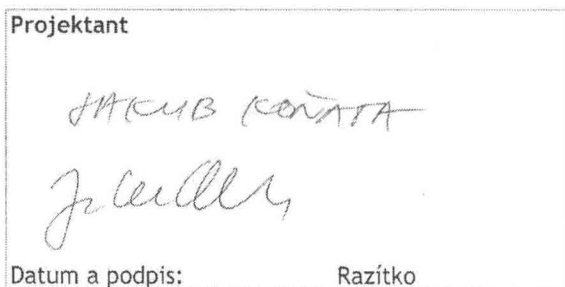 Projektant
JAKUB KOŇATA
Datum a podpis: Razítko